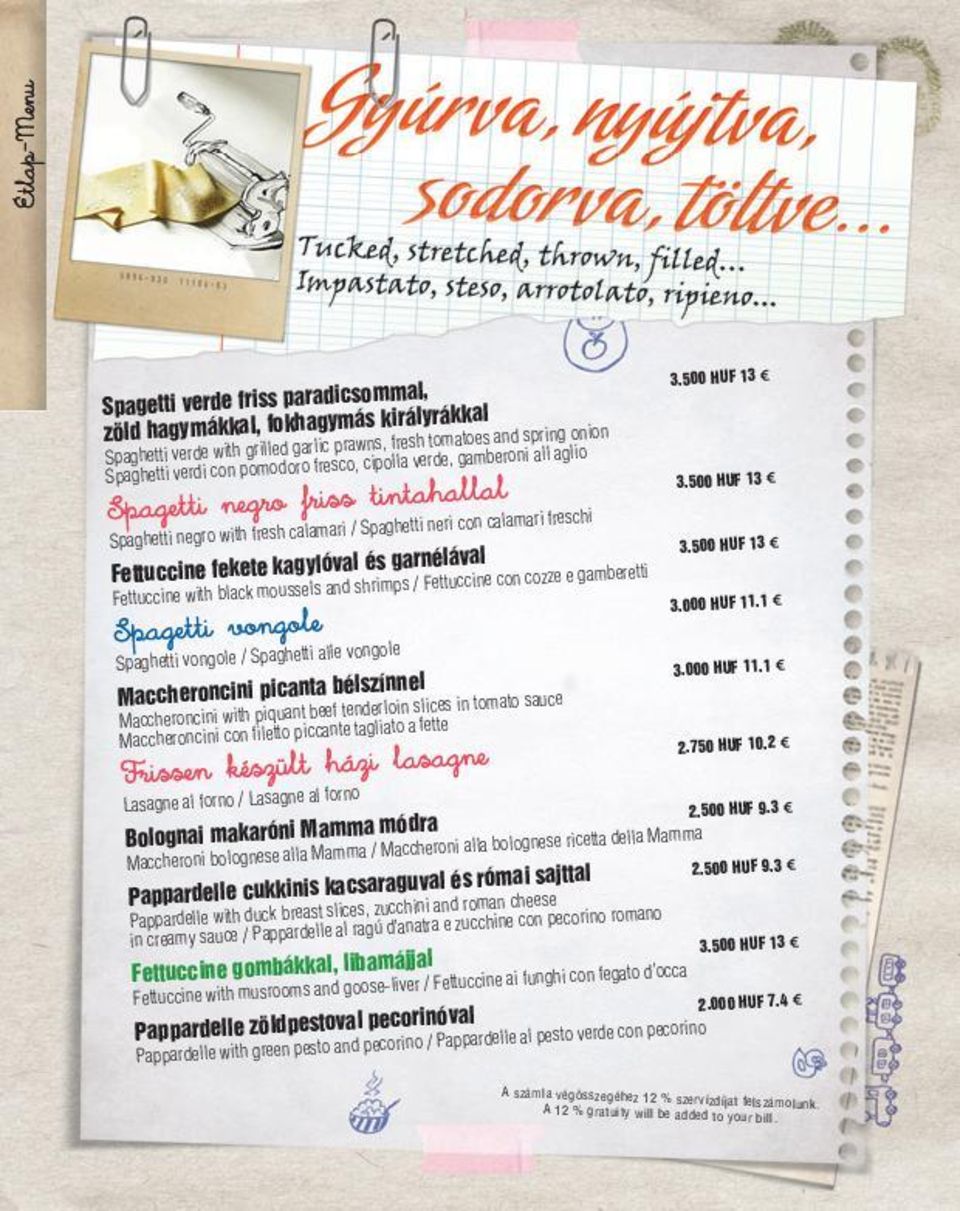 Étlap-Menu
Gyúrva, nyújtva,
sodorva, töltve...
Tucked, stretched, thrown, filled...
Impastato, steso, arrotolato, ripieno...
Spagetti verde friss paradicsommal,
zöld hagymákkal, fokhagymás királyrákkal
3.500 HUF 13 €
Spaghetti verde with grilled garlic prawns, fresh tomatoes and spring onion
Spaghetti verdi con pomodoro fresco, cipolla verde, gamberoni all aglio
Spagetti negro friss tintahallal
3.500 HUF 13 €
Spaghetti negro with fresh calamari / Spaghetti neri con calamari freschi
Fettuccine fekete kagylóval és garnélával
3.500 HUF 13 €
Fettuccine with black moussels and shrimps / Fettuccine con cozze e gamberetti
Spagetti vongole
3.000 HUF 11.1 €
Spaghetti vongole / Spaghetti alle vongole
Maccheroncini picanta bélszínnel
3.000 HUF 11.1 €
Maccheroncini with piquant beef tenderloin slices in tomato sauce
Maccheroncini con filetto piccante tagliato a fette
Frissen készült házi lasagne
2.750 HUF 10.2 €
Lasagne al forno / Lasagne al forno
Bolognai makaróni Mamma módra
2.500 HUF 9.3 €
Maccheroni bolognese alla Mamma / Maccheroni alla bolognese ricetta della Mamma
Pappardelle cukkinis kacsaraguval és római sajttal
2.500 HUF 9.3 €
Pappardelle with duck breast slices, zucchini and roman cheese
in creamy sauce / Pappardelle al ragú d'anatra e zucchine con pecorino romano
Fettuccine gombákkal, libamájjal
3.500 HUF 13 €
Fettuccine with musrooms and goose-liver / Fettuccine ai funghi con fegato d'occa
Pappardelle zöldpestoval pecorinóval
2.000 HUF 7.4 €
Pappardelle with green pesto and pecorino / Pappardelle al pesto verde con pecorino
A számla végösszegéhez 12 % szervízdíjat felszámolunk.
A 12 % gratuity will be added to your bill.